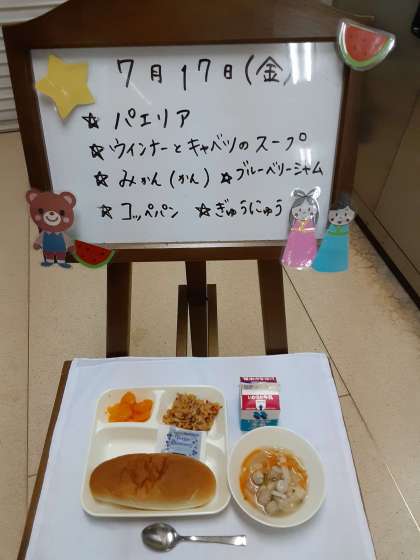 7月17日(金)
☆ パエリア
☆ ウインナーとキャベツのスープ
☆ みかん(かん) ☆ ブルーベリージャム
☆ コッペパン ☆ ぎゅうにゅう